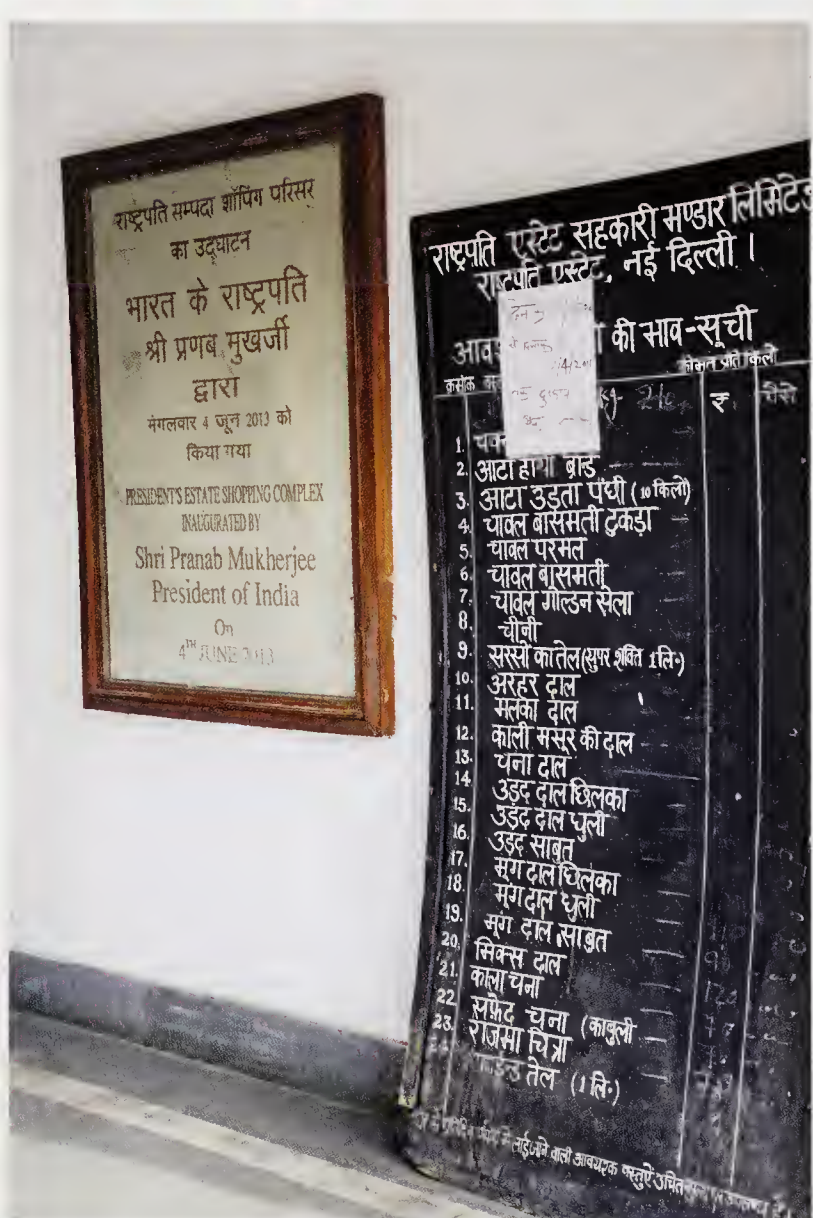 राष्ट्रपति सम्पदा शॉपिंग परिसर
का उद्घाटन
भारत के राष्ट्रपति
श्री प्रणब मुखर्जी
द्वारा
मंगलवार 4 जून 2013 को
किया गया
PRESIDENT'S ESTATE SHOPPING COMPLEX
INAUGURATED BY
Shri Pranab Mukherjee
President of India
On
4TH JUNE 2013
राष्ट्रपति एस्टेट सहकारी भण्डार लिमिटेड
राष्ट्रपति एस्टेट, नई दिल्ली ।
की भाव-सूची
कीमत प्रति किलो
क्रमांक
रु. पैसे
1.
2. आटा हाथी ब्रांड
3. आटा उड़ता पंछी (10 किलो)
4. चावल बासमती टुकड़ा
5. चावल परमल
6. चावल बासमती
7. चावल गोल्डन सेला
8. चीनी
9. सरसों का तेल (सुपर शक्ति 1लि॰)
10. अरहर दाल
11. मलका दाल
12. काली मसूर की दाल
13. चना दाल
14. उड़द दाल छिलका
15. उड़द दाल धुली
16. उड़द साबुत
17. मूंग दाल छिलका
18. मूंग दाल धुली
19. मूंग दाल साबुत
20. मिक्स दाल
21. काला चना
22. सफ़ेद चना (काबुली
23. राजमा चित्रा
तेल (1 लि॰)
लाई जाने वाली आवश्यक वस्तुऐं उचित